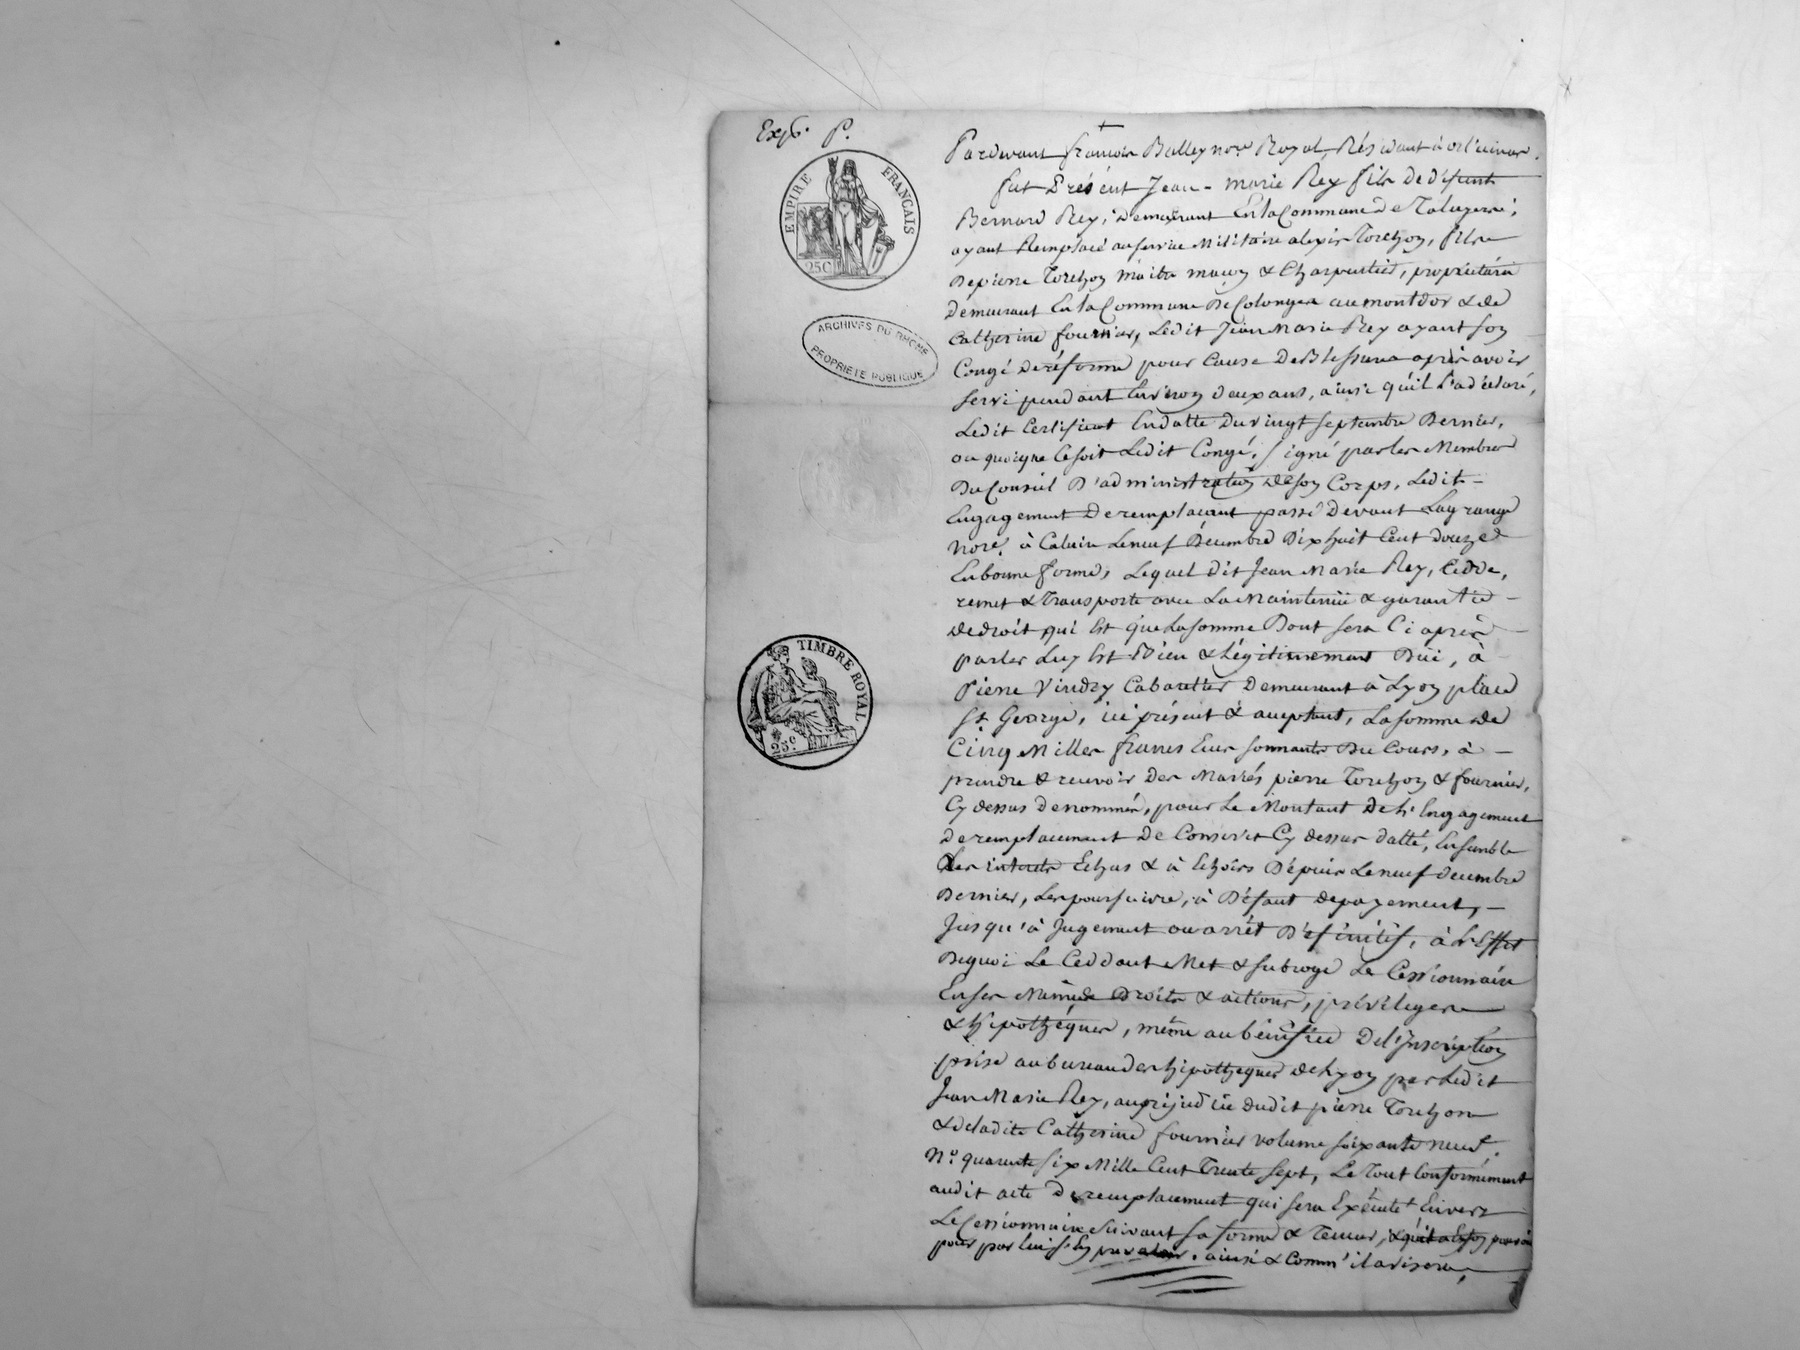 Exp. P.
EMPIRE FRANCAIS
25C
ARCHIVES DU RHÔNE
PROPRIETE PUBLIQUE
TIMBRE ROYAL
25c.
Pardevant françois Balley nore Royal, Résidant à
fut Présent Jean-marie Rey fils de défunt
Bernard Rey, demeurant En la Commune de Taluyers,
ayant Remplacé au service Militaire alexis Torchon, fils
De pierre Torchon maitre maçon & Charpentier, propriétaire
Demeurant En la Commune De Colonges au montdor & de
Catherine fournier, Ledit Jean Marie Rey ayant son
Congé de réforme pour Cause De Blessures après avoir
servi pendant Environ deux ans, ainsi qu'il l'a déclaré,
Ledit Certificat En datte Du vingt septembre Dernier,
ou quoique Ce soit Ledit Congé, signé par les Membres
Du Conseil D'administration de son Corps, Ledit
Engagement De remplacant passé Devant Lagrange
Nore. à Caluire Le neuf Décembre Dix huit Cent douze
En bonne forme, Lequel dit Jean Marie Rey, Cedde,
remet & Transporte avec La Maintenüe & garantie
De droit qui Est que La somme Dont sera Ci après
parler Luy Est Bien & Légitimement Düe, à
Pierre Vindry Cabarettier Demeurant à Lyon place
St. George, ici présent & acceptant, La somme De
Cinq Milles francs Ecus sonnants Du Cours, à
prendre & recevoir Des Mariés pierre Torchon & fournier,
Cy dessus denommés, pour Le Montant De L'Engagement
De remplacement De Conscrit Cy dessus datté, Ensemble
Les intérêts Echus & à Echoirs Depuis Le neuf decembre
Dernier, Les poursuivre, à Défaut de payement,
Jusqu'à Jugement ou arrêt Définitif, à L'Effet
De quoi Le Ceddant Met & subroge Le Cessionnaire
En ses Mêmes Droits & actions, privileges
& hipothéques, même au bénéfice De l'Inscription
prise au bureau des hipothéques de Lyon par Ledit
Jean Marie Rey, au préjudice dudit pierre Torchon
& de ladite Catherine fournier volume soixante neuf,
No. quarante six Mille Cent Trente sept, Le Tout Conformément
audit acte De remplacement qui sera Exécuté Envers
Le Cessionnaire suivant sa forme & Teneur,
pour par lui s'En prevaloir, ainsi & Comm' il avisera,